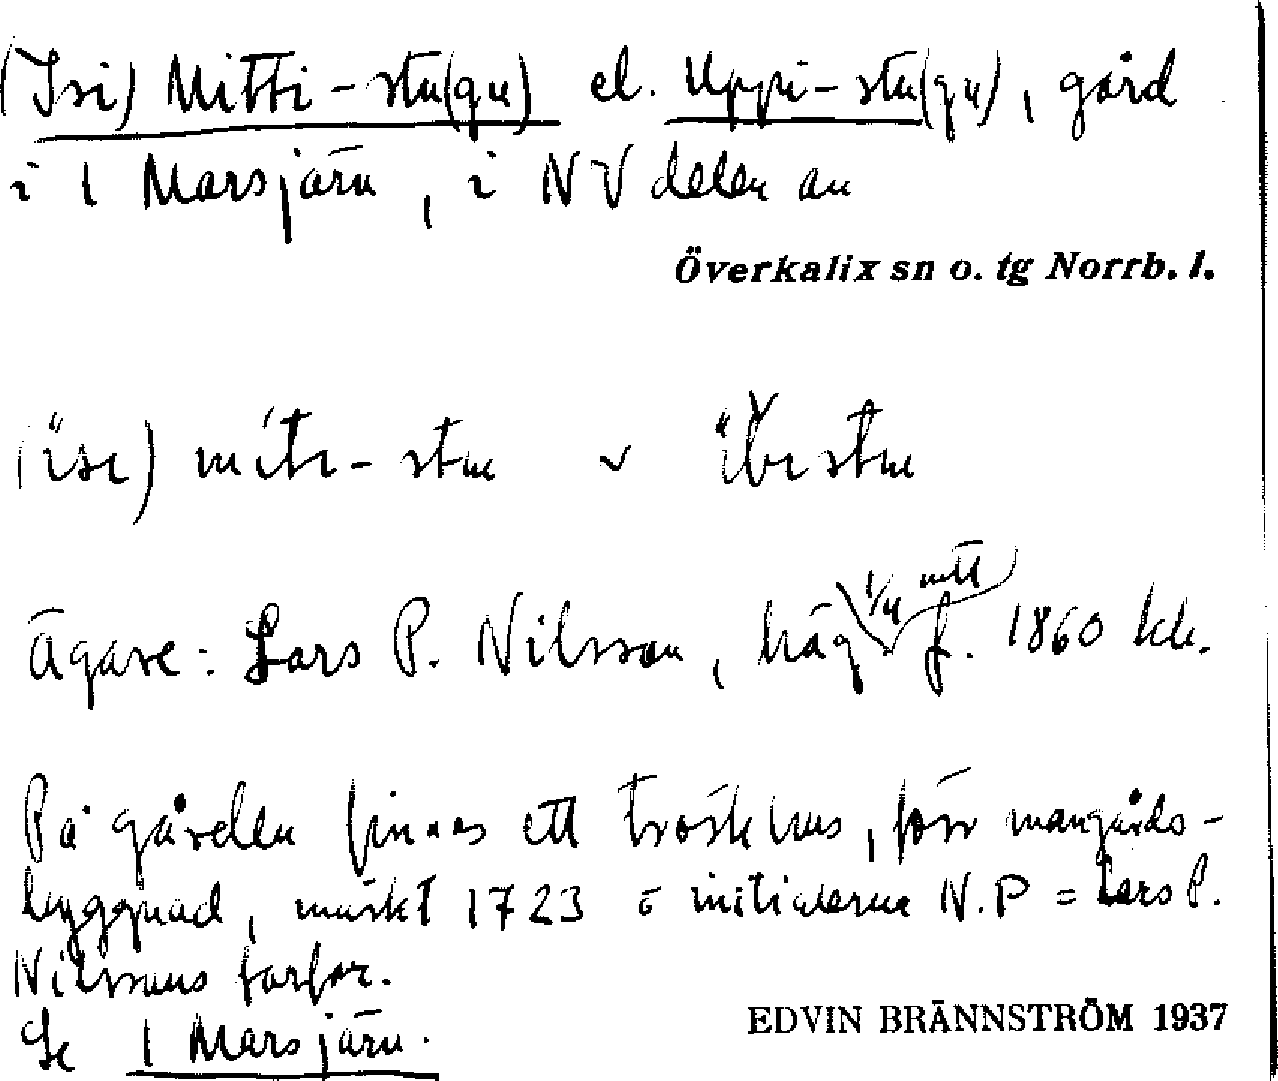 (Isi) Mitti-stu(gu) el. Uppi-stu(gu), gård
i 1 Marsjärv, i NV delen av
Överkalix sn o. tg Norrb. l.
(ise) mite-stu v
Ägare: Lars P. Nilsson, häg 1/4 mtl f. 1860 kk.
På gården finnes ett tröskhus, förr mangårds-
byggnad, märkt 1723 o initialerna N.P = Lars P.
Nilssons farfar.
Se 1 Marsjärv.
EDVIN BRÄNNSTRÖM 1937